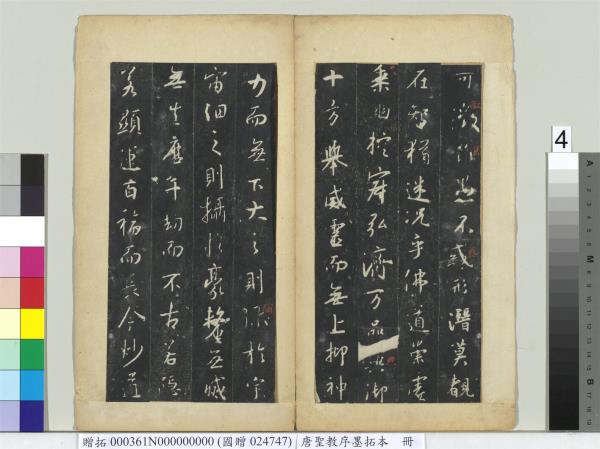 可徵雖愚不惑形潛莫覩
在智猶迷況乎佛道崇虛
乘幽控寂弘濟万品典御
十方舉威靈而無上抑神
力而無下大之則彌於宇
宙細之則攝於豪釐無滅
無生歷千劫而不古若隱
若顯運百福而長今妙道
4
贈拓 000361N000000000 (國贈 024747) 唐聖教序墨拓本 冊